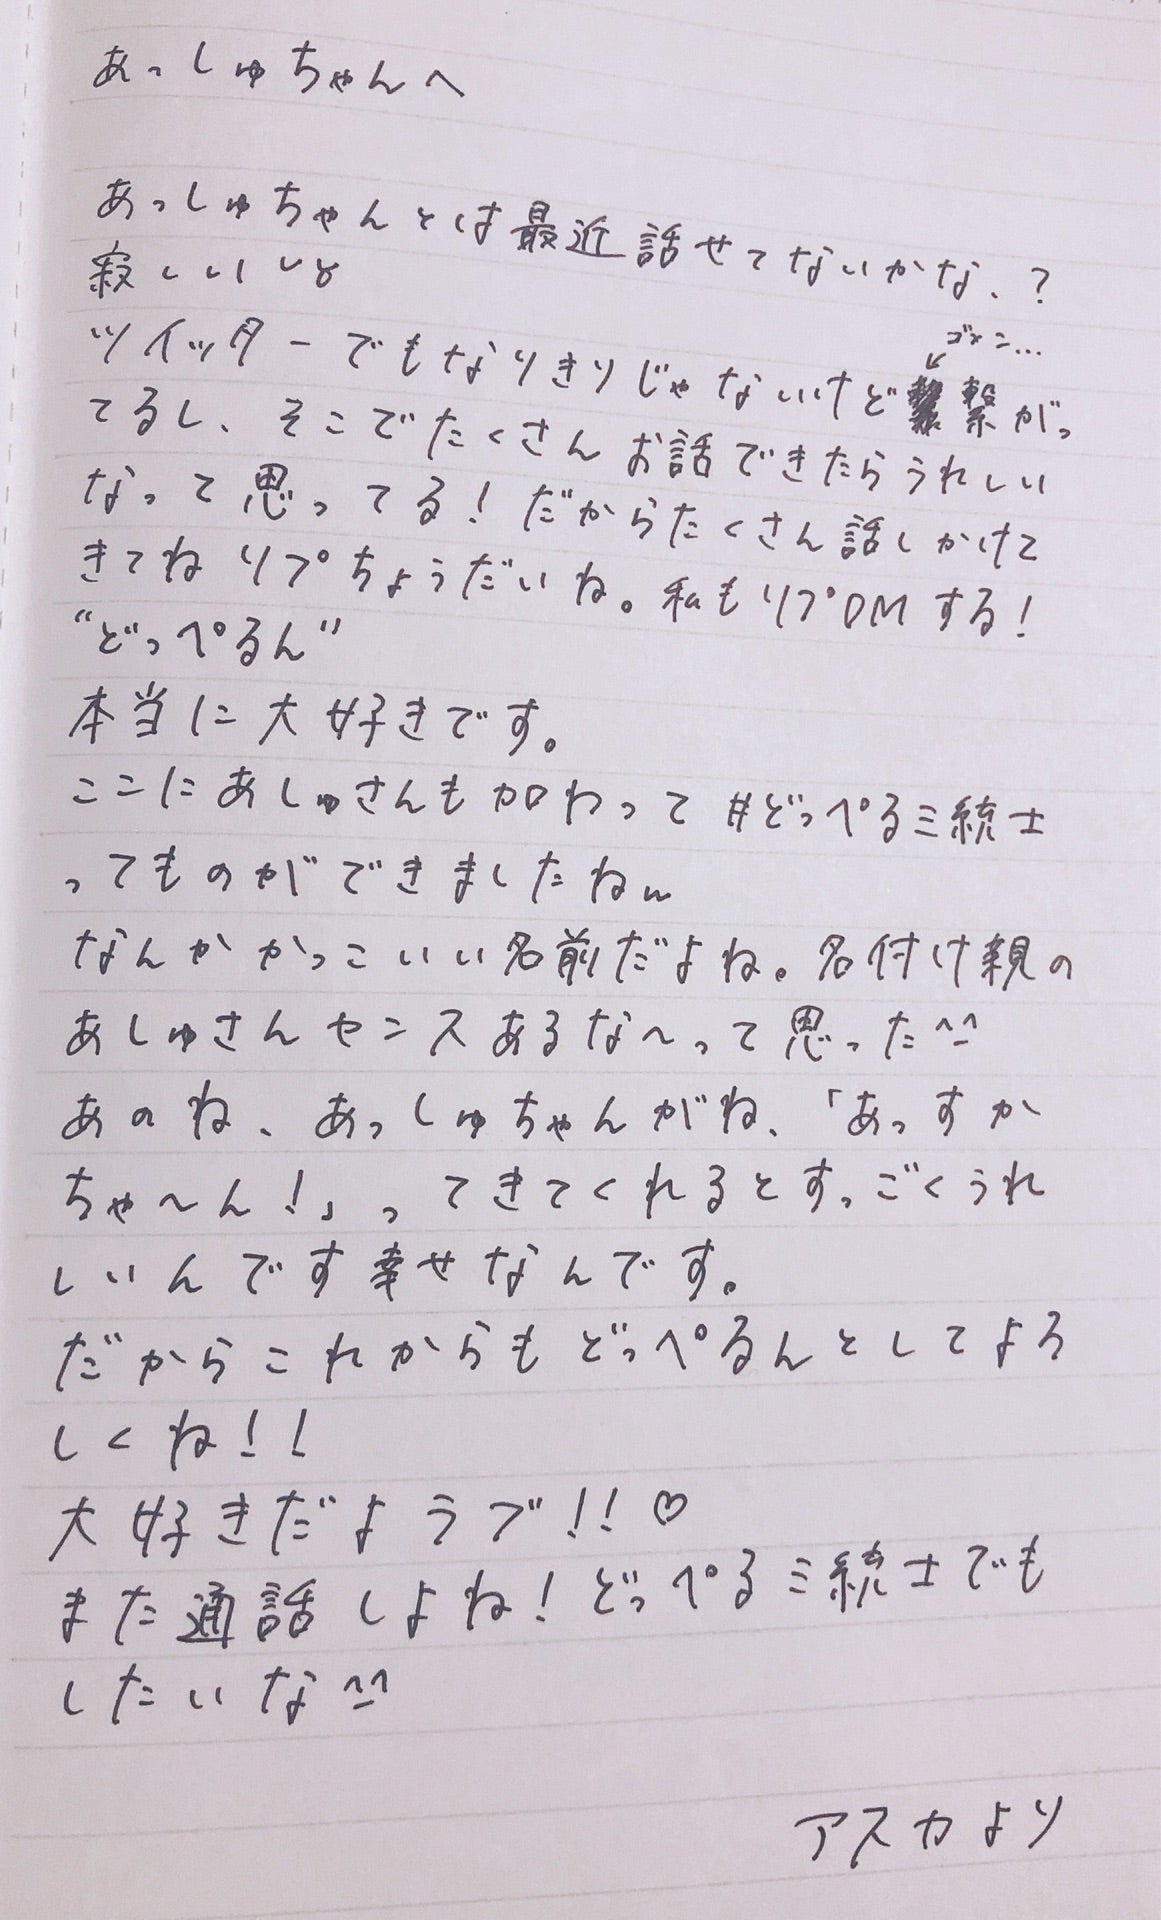 あっしゅちゃんへ
あっしゅちゃんとは最近話せてないかな、?
寂しいいよ
ゴメン…
ツイッターでもなりきりじゃないけど繋がっ
てるし、そこでたくさんお話できたらうれしい
なって思ってる!だからたくさん話しかけて
きてねリプちょうだいね。私もリプDMする!
“どっぺるん”
本当に大好きです。
ここにあしゅさんも加わって#どっぺる三統士
ってものができましたねw
なんかかっこいい名前だよね。名付け親の
あしゅさんセンスあるな〜って思った^_^
あのね、あっしゅちゃんがね、「あっすか
ちゃ〜ん!」ってきてくれるとすっごくうれ
しいんです幸せなんです。
だからこれからもどっぺるんとしてよろ
しくね!!
大好きだよラブ!!♡
また通話しよね!どっぺる三統士でも
したいな^_^
アスカより